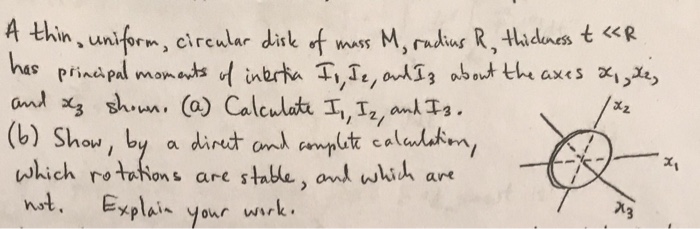 A thin, uniform, circular disk of mass M, radius R, thickness t << R
has principal moments of inertia I₁, I₂, and I₃ about the axes x₁, x₂,
and x₃ shown. (a) Calculate I₁, I₂, and I₃.
(b) Show, by a direct and complete calculation,
which rotations are stable, and which are
not. Explain your work.
x₂
x₁
x₃